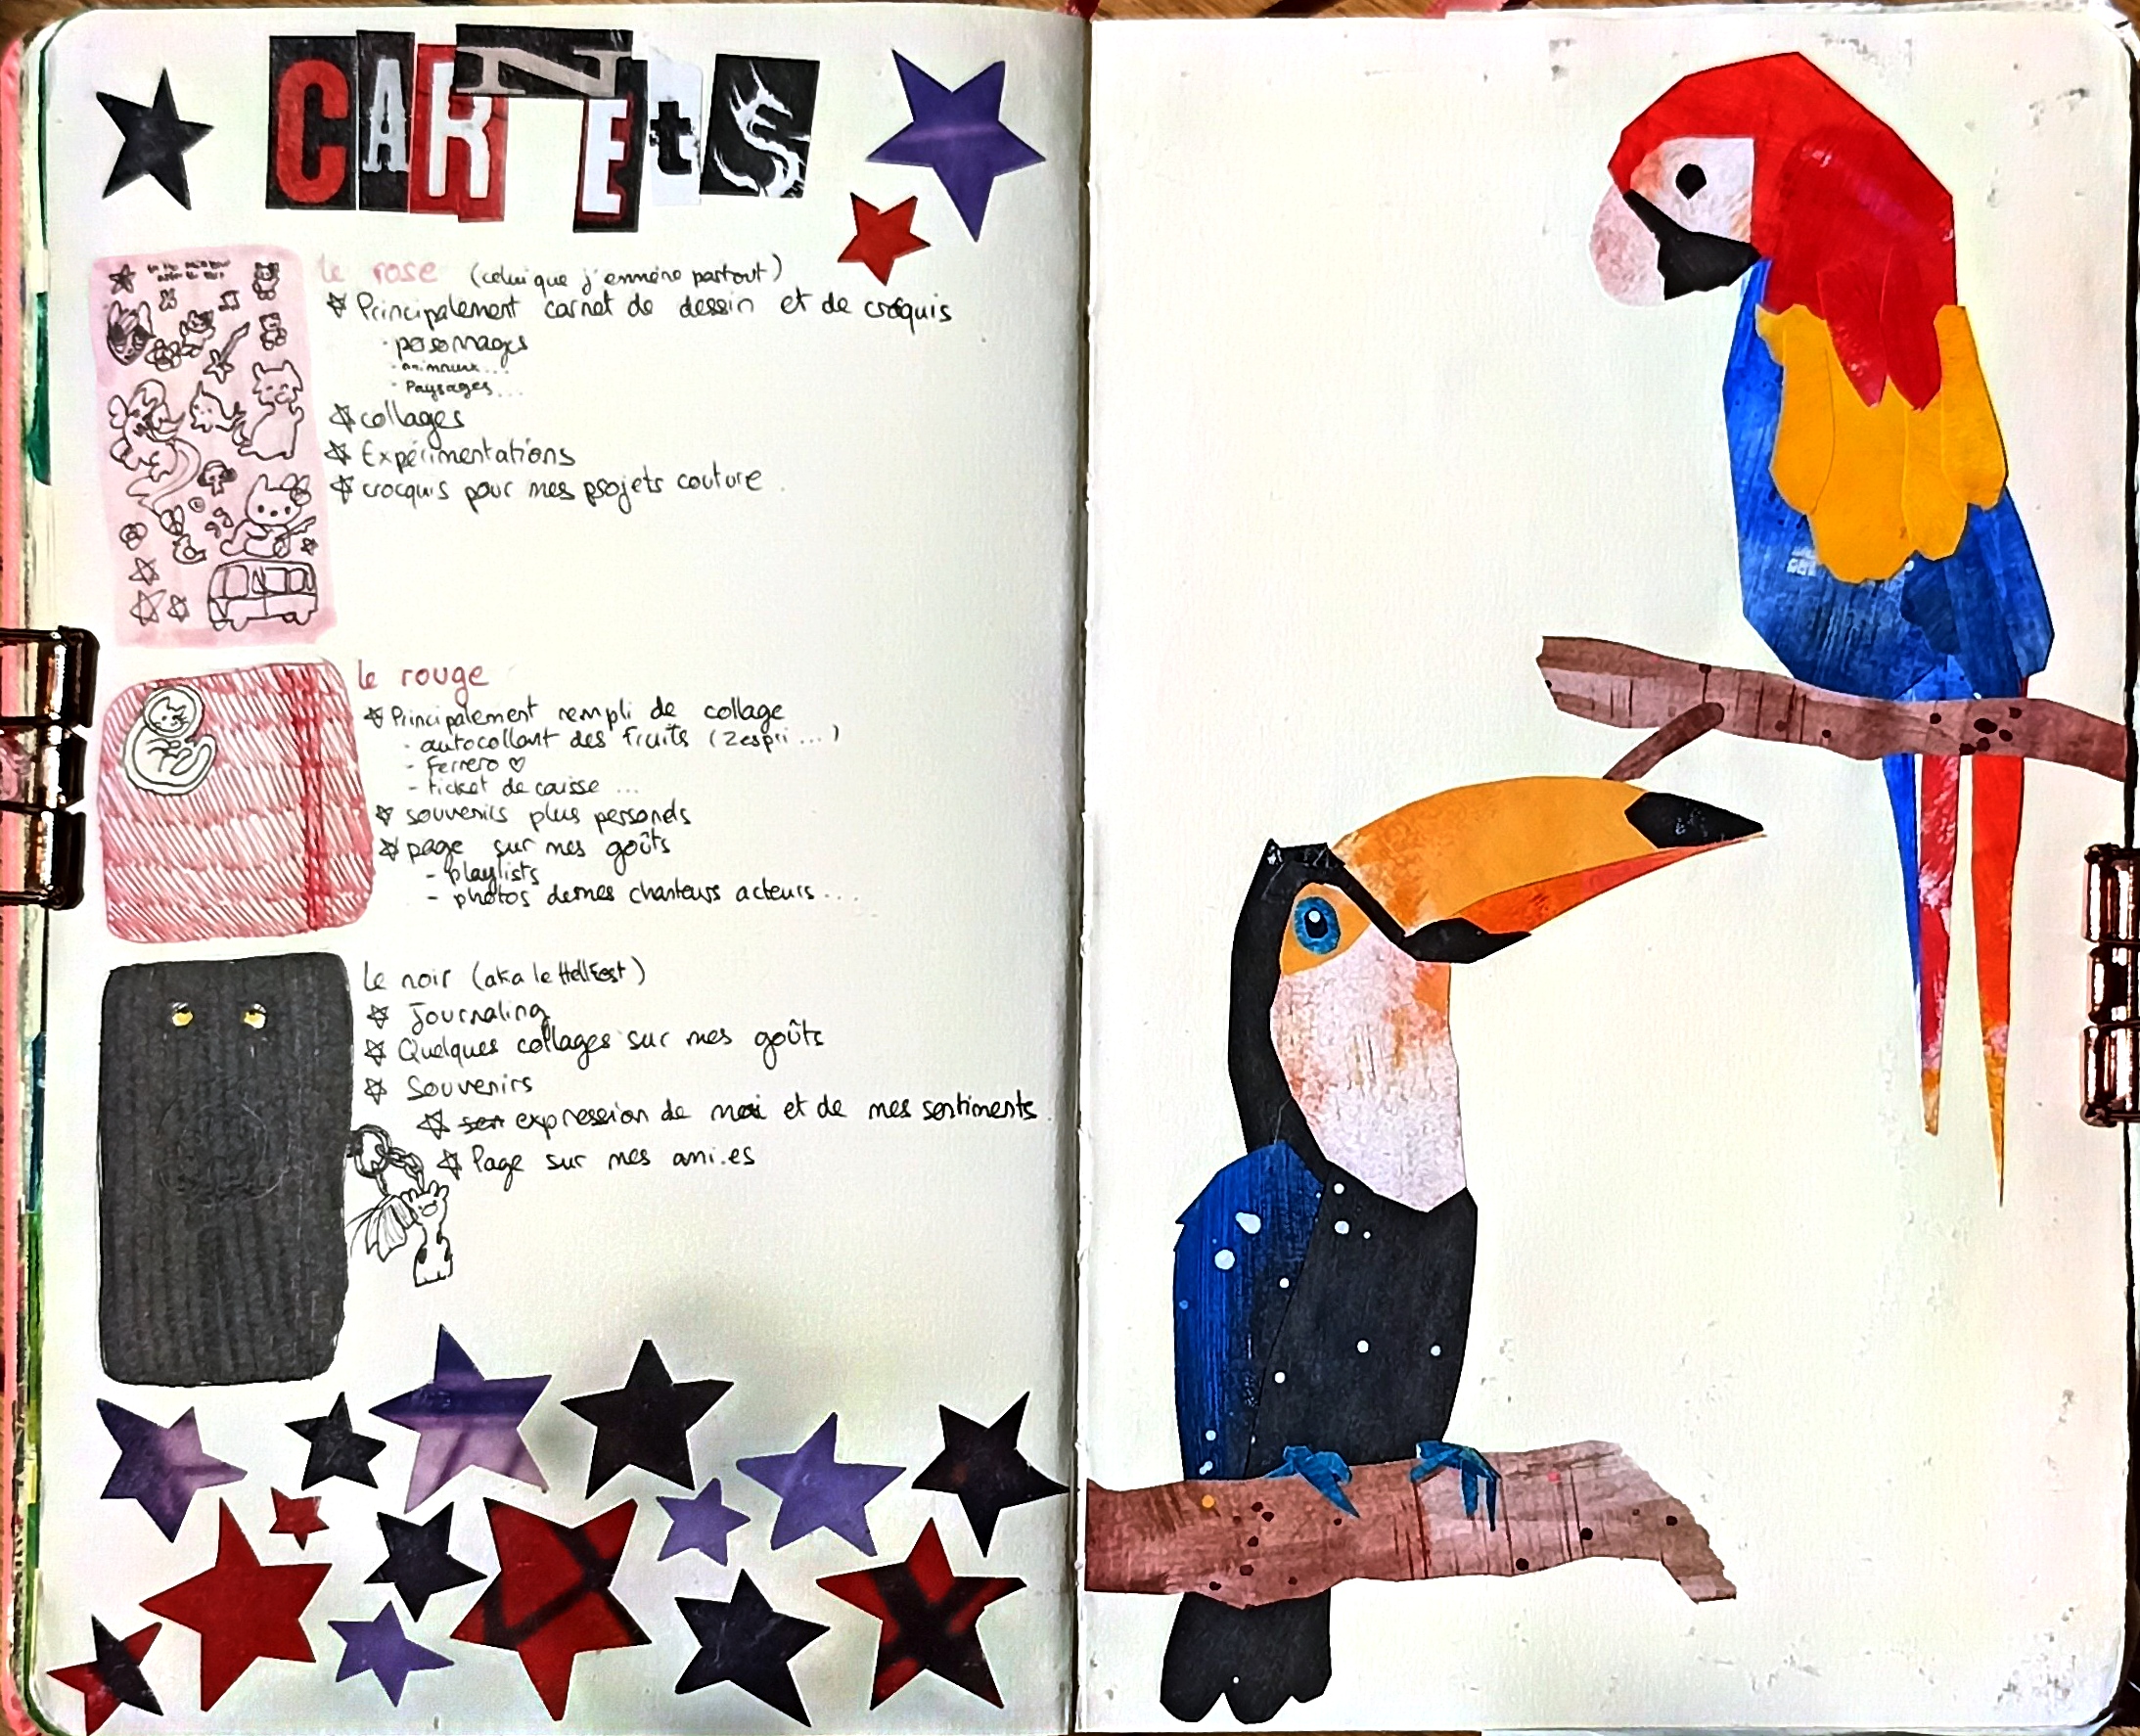 CARNEtS
le rose (celui que j'emmène partout)
Principalement carnet de dessin et de croquis
- personnages
- animaux...
- Paysages...
collages
Expérimentations
crocquis pour mes projets couture.
le rouge
Principalement rempli de collage
- autocollant des fruits (Zespri...)
- Ferrero ♡
- ticket de caisse ...
souvenirs plus personels
page sur mes goûts
- playlists
- photos de mes chanteurs acteurs...
Le noir (aka le HellFest)
Journaling
Quelques collages sur mes goûts
Souvenirs
expression de moi et de mes sentiments.
Page sur mes ami.es